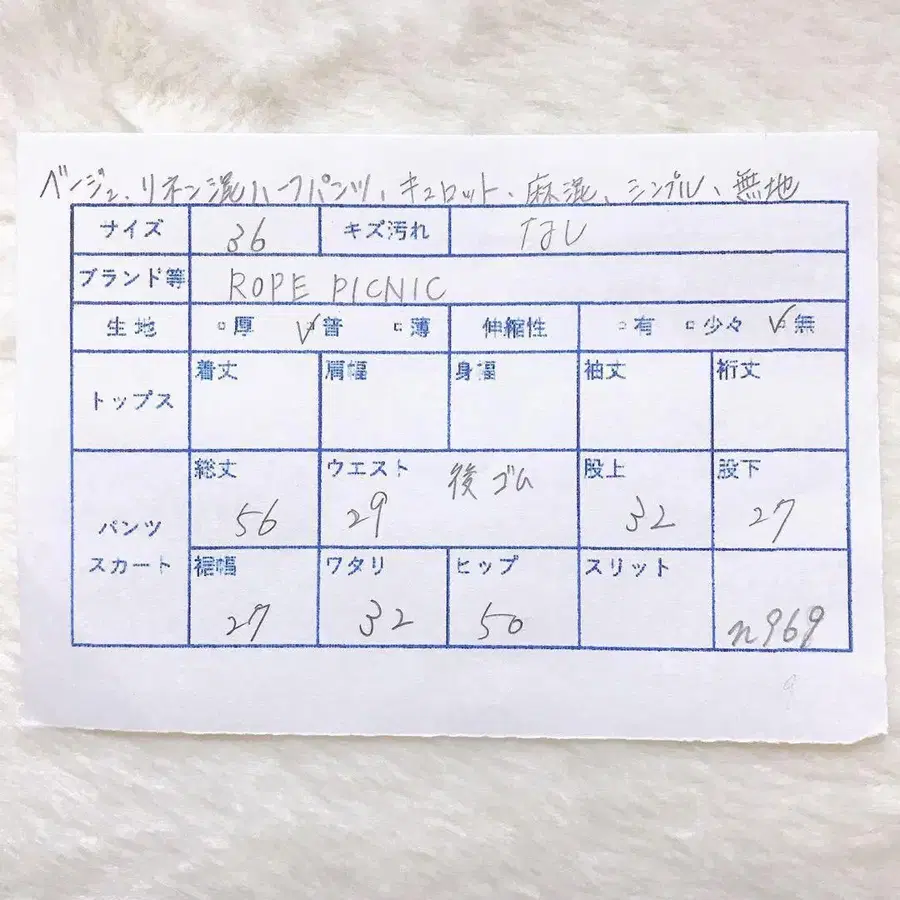 ベージュ、リネン混ハーフパンツ、キュロット、麻混、シンプル、無地
サイズ 36 キズ汚れ なし
ブランド等 ROPE PICNIC
生地 □厚 ☑普 □薄 伸縮性 □有 □少々 ☑無
トップス 着丈 肩幅 身幅 袖丈 裄丈
パンツ スカート 総丈 56 ウエスト 29 後ゴム 股上 32 股下 27
裾幅 27 ワタリ 32 ヒップ 50 スリット n969